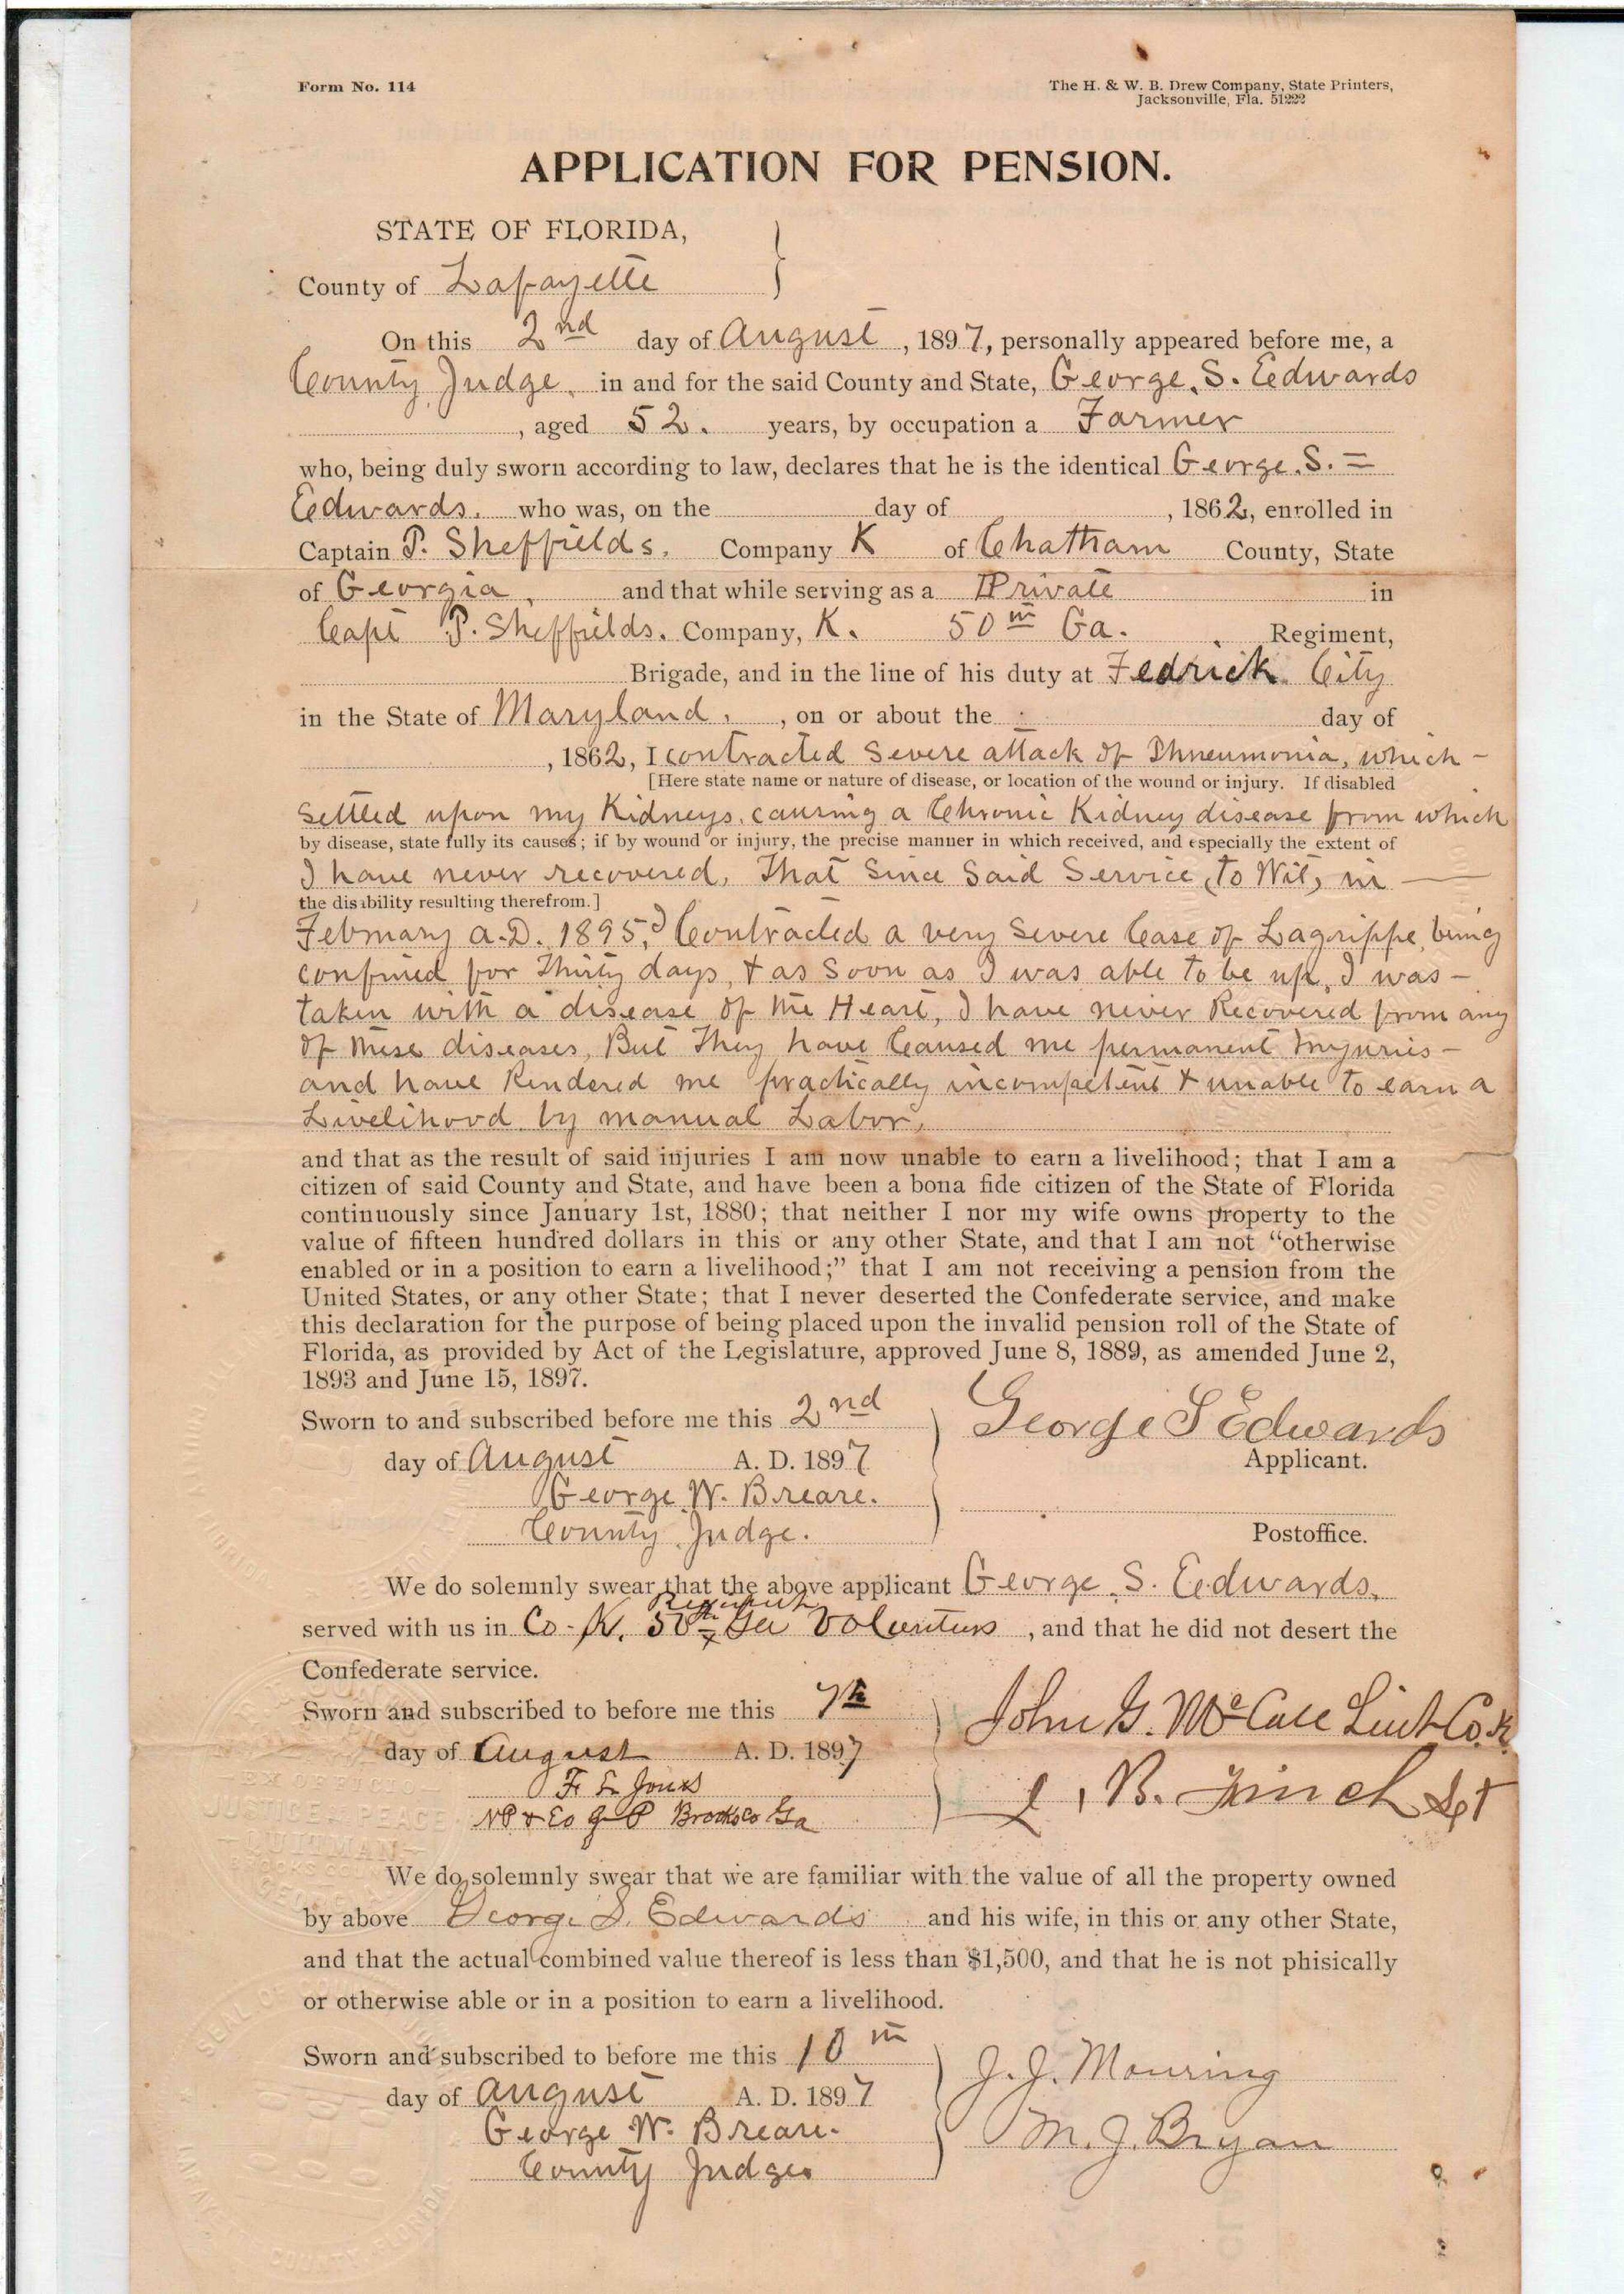 Form No. 114
The H. & W. B. Drew Company, State Printers,
Jacksonville, Fla. 51222
APPLICATION FOR PENSION.
STATE OF FLORIDA,
County of Lafayette
On this 2nd day of August, 1897, personally appeared before me, a
County Judge, in and for the said County and State, George. S. Edwards
, aged 52. years, by occupation a Farmer
who, being duly sworn according to law, declares that he is the identical George. S. =
Edwards. who was, on the day of , 1862, enrolled in
Captain P. Sheffields. Company K of Chatham County, State
of Georgia, and that while serving as a Private in
Capt P. Sheffields. Company, K. 50th Ga. Regiment,
Brigade, and in the line of his duty at Fedrick City
in the State of Maryland. , on or about the day of
, 1862, I contracted Severe attack of Phneumonia, which -
[Here state name or nature of disease, or location of the wound or injury. If disabled
Settled upon my Kidneys, causing a Chronic Kidney disease from which
by disease, state fully its causes; if by wound or injury, the precise manner in which received, and especially the extent of
I have never recovered, That Since Said Service, To Wit, in
the disibility resulting therefrom.]
February A.D. 1895, I Contracted a very Severe Case of Lagrippe, being
confined for Thirty days, & as Soon as I was able to be up, I was -
taken with a disease of the Heart, I have never Recovered from any
of these diseases, But They have Caused me permanent Injuries -
and have Rendered me practically incompetent & unable to earn a
Livelihood by manual Labor,
and that as the result of said injuries I am now unable to earn a livelihood; that I am a
citizen of said County and State, and have been a bona fide citizen of the State of Florida
continuously since January 1st, 1880; that neither I nor my wife owns property to the
value of fifteen hundred dollars in this or any other State, and that I am not "otherwise
enabled or in a position to earn a livelihood;" that I am not receiving a pension from the
United States, or any other State; that I never deserted the Confederate service, and make
this declaration for the purpose of being placed upon the invalid pension roll of the State of
Florida, as provided by Act of the Legislature, approved June 8, 1889, as amended June 2,
1893 and June 15, 1897.
Sworn to and subscribed before me this 2nd
day of August A. D. 1897
George S Edwards
Applicant.
George W. Breare.
County Judge.
Postoffice.
We do solemnly swear that the above applicant George. S. Edwards,
Regiment
served with us in Co. K. 50th Ga Volunteers, and that he did not desert the
Confederate service.
Sworn and subscribed to before me this 7th
John G. McCall Lieut Co. K
day of August A. D. 1897
F. L Jones
B. Finch Sgt
NP & Ex J P Brooks Co Ga
We do solemnly swear that we are familiar with the value of all the property owned
by above George S. Edwards and his wife, in this or any other State,
and that the actual combined value thereof is less than $1,500, and that he is not phisically
or otherwise able or in a position to earn a livelihood.
Sworn and subscribed to before me this 10th
J. J. Mouring
day of August A. D. 1897
George W. Breare.
M. J. Bryan
County Judge